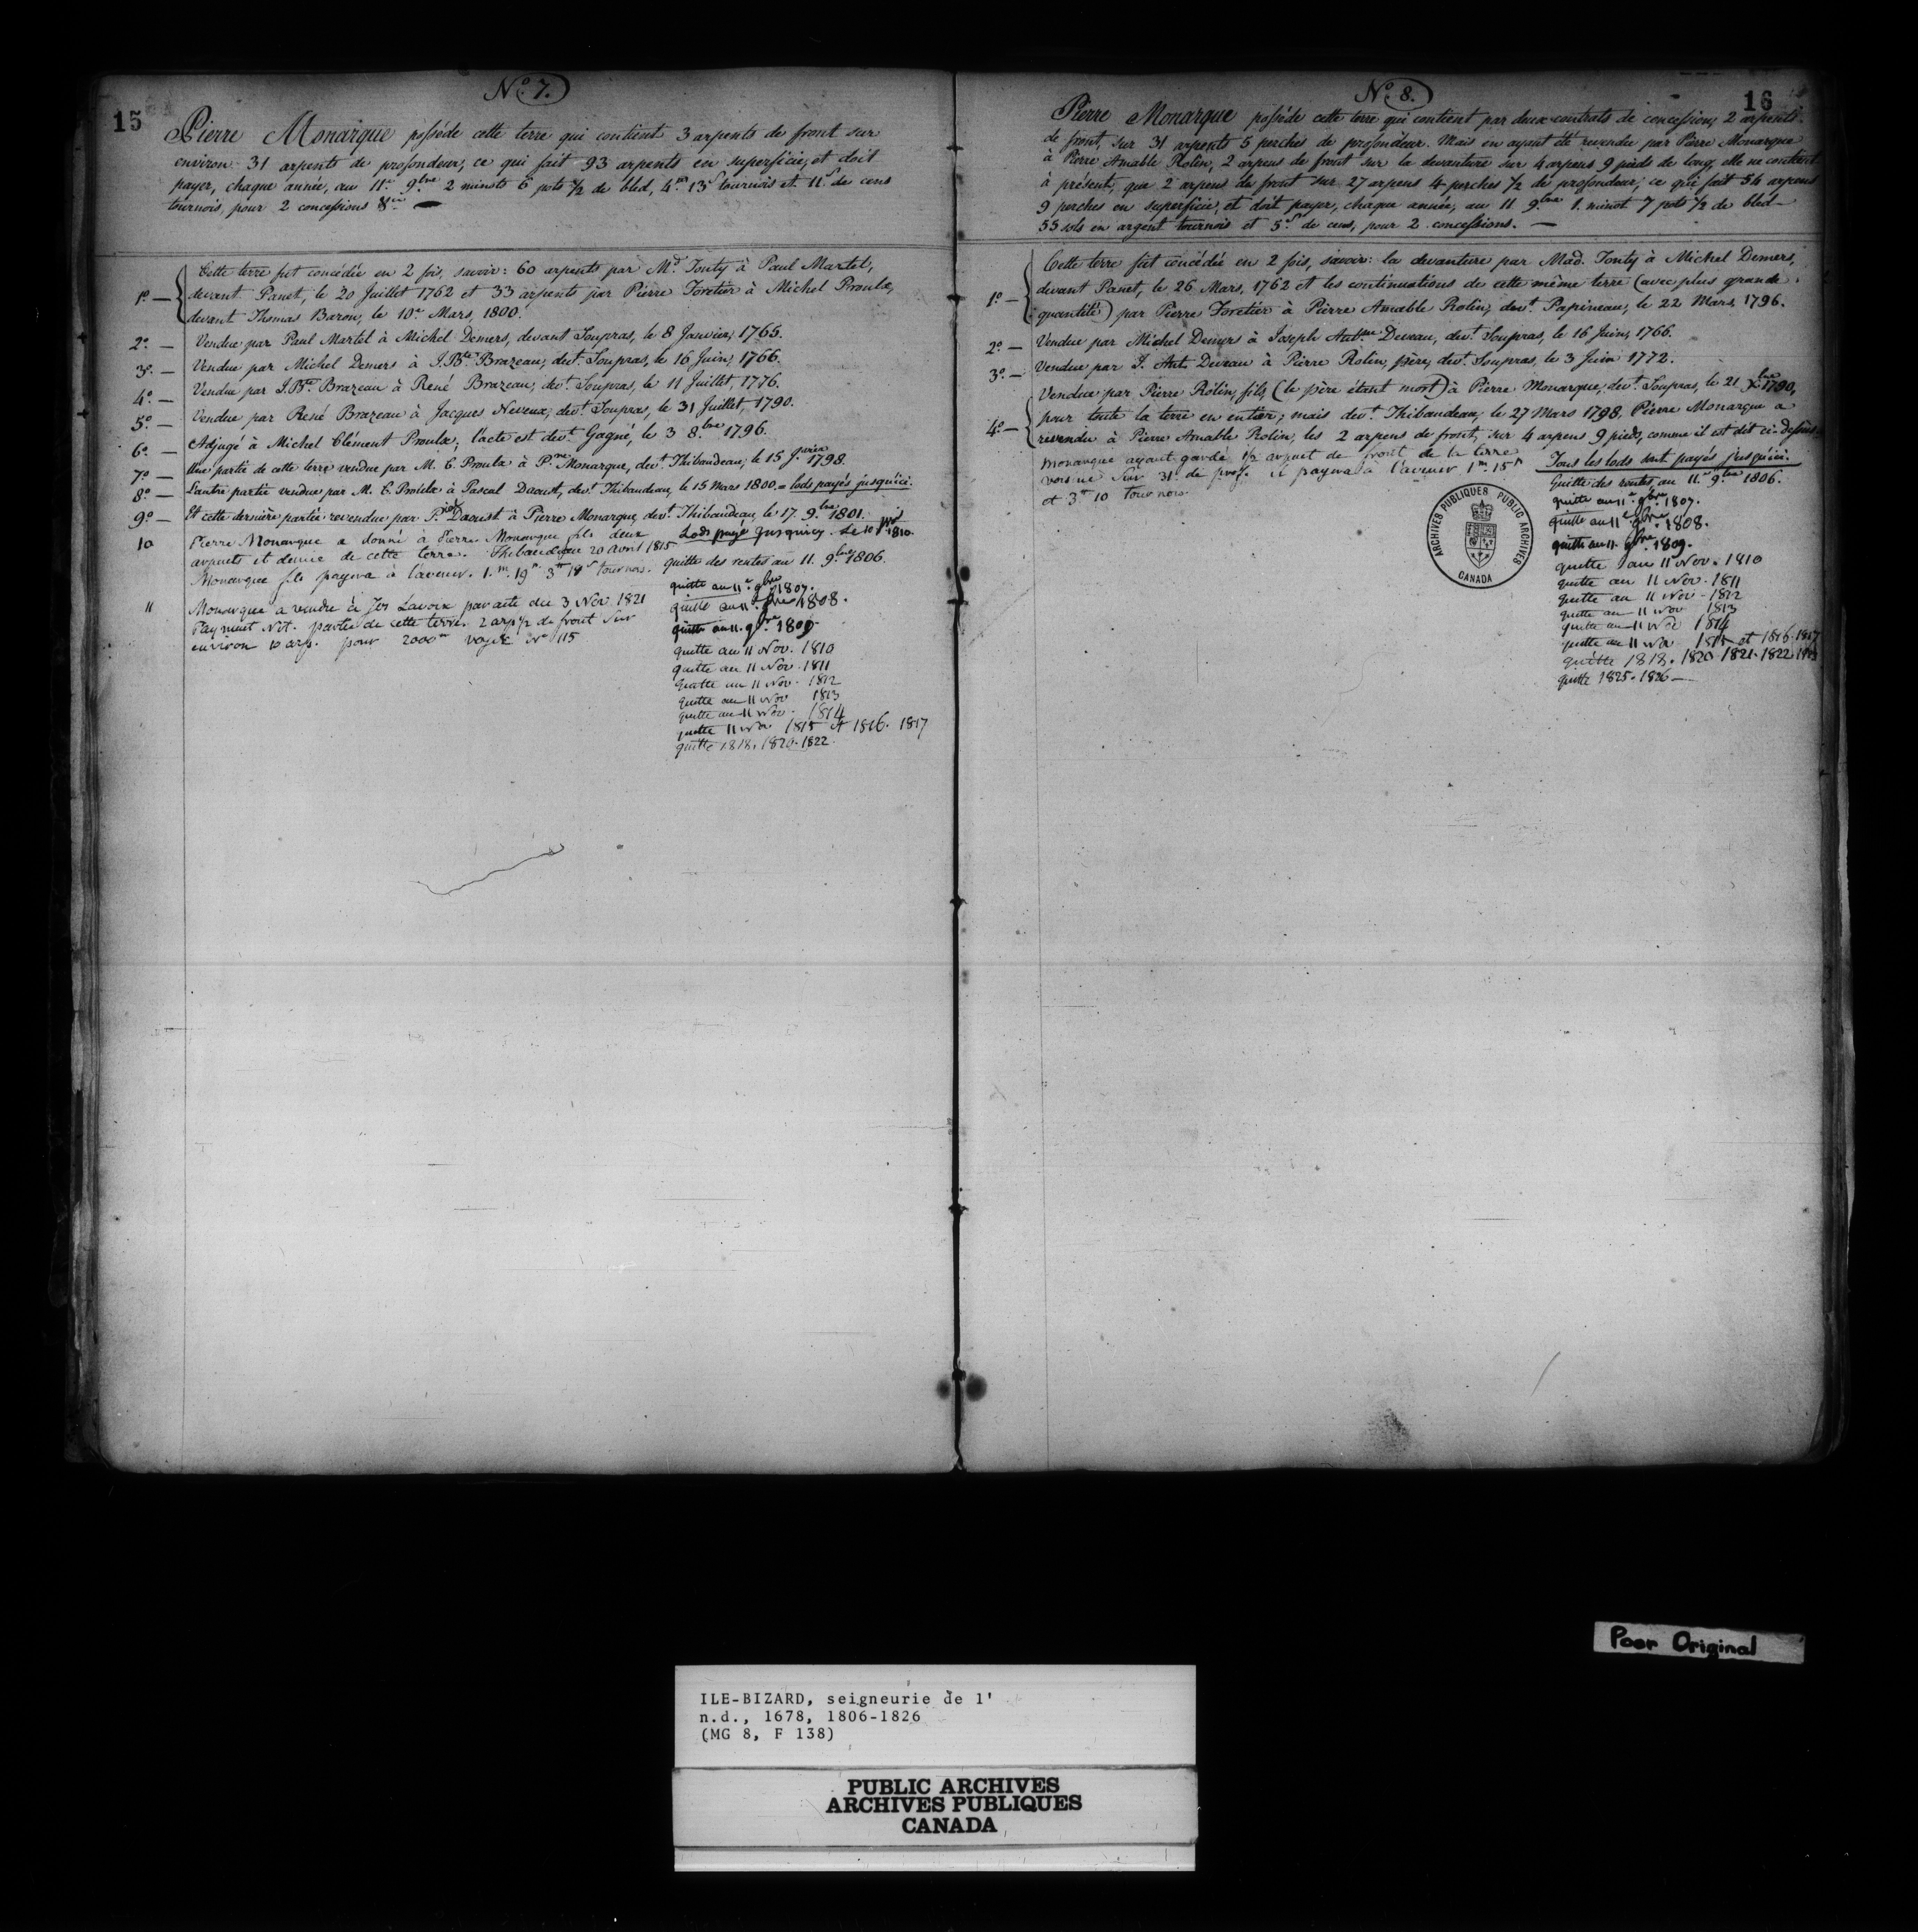 15
No. 7.
Pierre Monarque possède cette terre qui contient 3 arpents de front sur
environ 31 arpents de profondeur, ce qui fait 93 arpents en superficie, et doit
payer, chaque année, au 11e 9.bre 2 minots 6 pots 1/2 de bled, 4.tt 13.s tournois et 11.s de cens
tournois, pour 2 concessions
1o. — Cette terre fut concédée en 2 fois, savoir: 60 arpents par Md. Tonty à Paul Martel,
devant Panet, le 20 Juillet 1762 et 33 arpents par Pierre Foretier à Michel Proulx,
devant Thomas Baron, le 10e Mars, 1800.
2o. — Vendue par Paul Martel à Michel Demers, devant Soupras, le 8 Janvier, 1765.
3o. — Vendue par Michel Demers à J. Bte. Brazeau, devt. Soupras, le 16 Juin, 1766.
4o. — Vendue par J. Bte Brazeau à René Brazeau, devt. Soupras, le 11 Juillet, 1776.
5o. — Vendue par René Brazeau à Jacques Neveux, devt. Soupras, le 31 Juillet, 1790.
6o. — Adjugé à Michel Clément Proulx, l'acte est devt. Gagné, le 3 8.bre 1796.
7o. — Une partie de cette terre vendue par M. C. Proulx à P.rre Monarque, devt. Thibaudeau, le 15 Janvier 1798.
8o. — L'autre partie vendue par M. C. Proulx à Pascal Daoust, devt. Thibaudeau, le 15 Mars 1800. = lods payés jusqu'ici.
9o. — Et cette dernière partie revendue par P. Daoust à Pierre Monarque, devt. Thibaudeau, le 17. 9.bre 1801.
Lods payé jusquicy. Le 10 1810.
10 Pierre Monarque a donné à Pierre Monarque fils deux
arpents et demie de cette terre. Thibaudeau 20 Avril 1815
Monarque fils payera à l'avenir. 1.m 19 3tt 18s tournois.
quitte des rentes au 11. 9.bre 1806.
quitte au 11e. 9bre 1807.
quitte au 11e. 9bre 1808.
quitte au 11. 9bre 1809.
quitte au 11 Nov. 1810
quitte au 11 Nov. 1811
quitte au 11 Nov. 1812
quitte au 11 Nov 1813
quitte au 11 Nov. 1814
quitte 11 Nov 1815 et 1816. 1817
quitte 1818. 1820. 1822.
11 Monarque a vendu à Lavoix par acte du 3 Nov 1821
Payment Not. partie de cette terre 2 arp 1/2 de front sur
environ 10 arp. pour 2000tt No 115
16
No. 8.
Pierre Monarque possède cette terre qui contient par deux contrats de concession, 2 arpents
de front, sur 31 arpents 5 perches de profondeur. Mais en ayant été revendu par Pierre Monarque
à Pierre Amable Rolin, 2 arpens de front sur la devanture sur 4 arpens 9 pieds de long, elle ne contient
à présent, que 2 arpens de front sur 27 arpens 4 perches 1/2 de profondeur; ce qui fait 54 arpens
9 perches en superficie, et doit payer, chaque année, au 11 9.bre 1. minot 7 pots 1/2 de bled —
55 sols en argent tournois et 5.s de cens, pour 2 concessions. —
1o. — Cette terre fût concédée en 2 fois, savoir: la devanture par Mad. Tonty à Michel Demers,
devant Panet, le 26 Mars, 1762 et les continuations de cette même terre (avec plus grande
quantité) par Pierre Foretier à Pierre Amable Rolin, devt. Papineau, le 22 Mars, 1796.
2o. — Vendue par Michel Demers à Joseph Devrau, devt. Soupras, le 16 Juin, 1766.
3o. — Vendue par J. Ant. Devrau à Pierre Rolin, père, devt. Soupras, le 3 Juin 1772.
4o. — Vendue par Pierre Rolin, fils, (le père étant mort) à Pierre Monarque, devt. Soupras, le 21 Xbre 1790,
pour toute la terre en entier; mais devt. Thibaudeau, le 27 Mars 1798, Pierre Monarque a
revendu à Pierre Amable Rolin, les 2 arpens de front, sur 4 arpens 9 pieds, comme il est dit ci-dessus.
Monarque ayant gardé 1/2 arpent de front de la terre
voisine sur 31 de prof. il payera à l'avenir 1m 15
et 3tt 10 tournois.
Tous les lods sont payés jusqu'ici.
Quitte des rentes, au 11.e 9bre 1806.
quitte au 11e. 9bre. 1807.
quitte au 11e 9bre. 1808.
quitte au 11. 9bre. 1809.
quitte au 11 Nov. 1810
quitte au 11 Nov. 1811
quitte au 11 Nov. 1812
quitte au 11 Nov 1813
quitte au 11 Nov 1814
quitte au 11 Nov 1815 et 1816. 1817
quitte 1818. 1820. 1821. 1822. 1823
quitte 1825. 1826 —
ARCHIVES PUBLIQUES PUBLIC ARCHIVES
CANADA
Poor Original
ILE-BIZARD, seigneurie de l'
n.d., 1678, 1806-1826
(MG 8, F 138)
PUBLIC ARCHIVES
ARCHIVES PUBLIQUES
CANADA